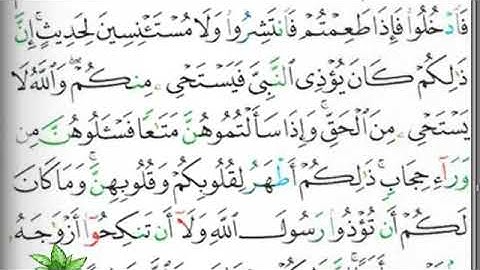 فَٱدۡخُلُواْ فَإِذَا طَعِمۡتُمۡ فَٱنتَشِرُواْ وَلَا مُسۡتَـٔۡنِسِينَ لِحَدِيثٍۚ إِنَّ
ذَٰلِكُمۡ كَانَ يُؤۡذِي ٱلنَّبِيَّ فَيَسۡتَحۡيِۦ مِنكُمۡۖ وَٱللَّهُ لَا
يَسۡتَحۡيِۦ مِنَ ٱلۡحَقِّۚ وَإِذَا سَأَلۡتُمُوهُنَّ مَتَٰعٗا فَسۡـَٔلُوهُنَّ مِن
وَرَآءِ حِجَابٖۚ ذَٰلِكُمۡ أَطۡهَرُ لِقُلُوبِكُمۡ وَقُلُوبِهِنَّۚ وَمَا كَانَ
لَكُمۡ أَن تُؤۡذُواْ رَسُولَ ٱللَّهِ وَلَآ أَن تَنكِحُوٓاْ أَزۡوَٰجَهُۥ